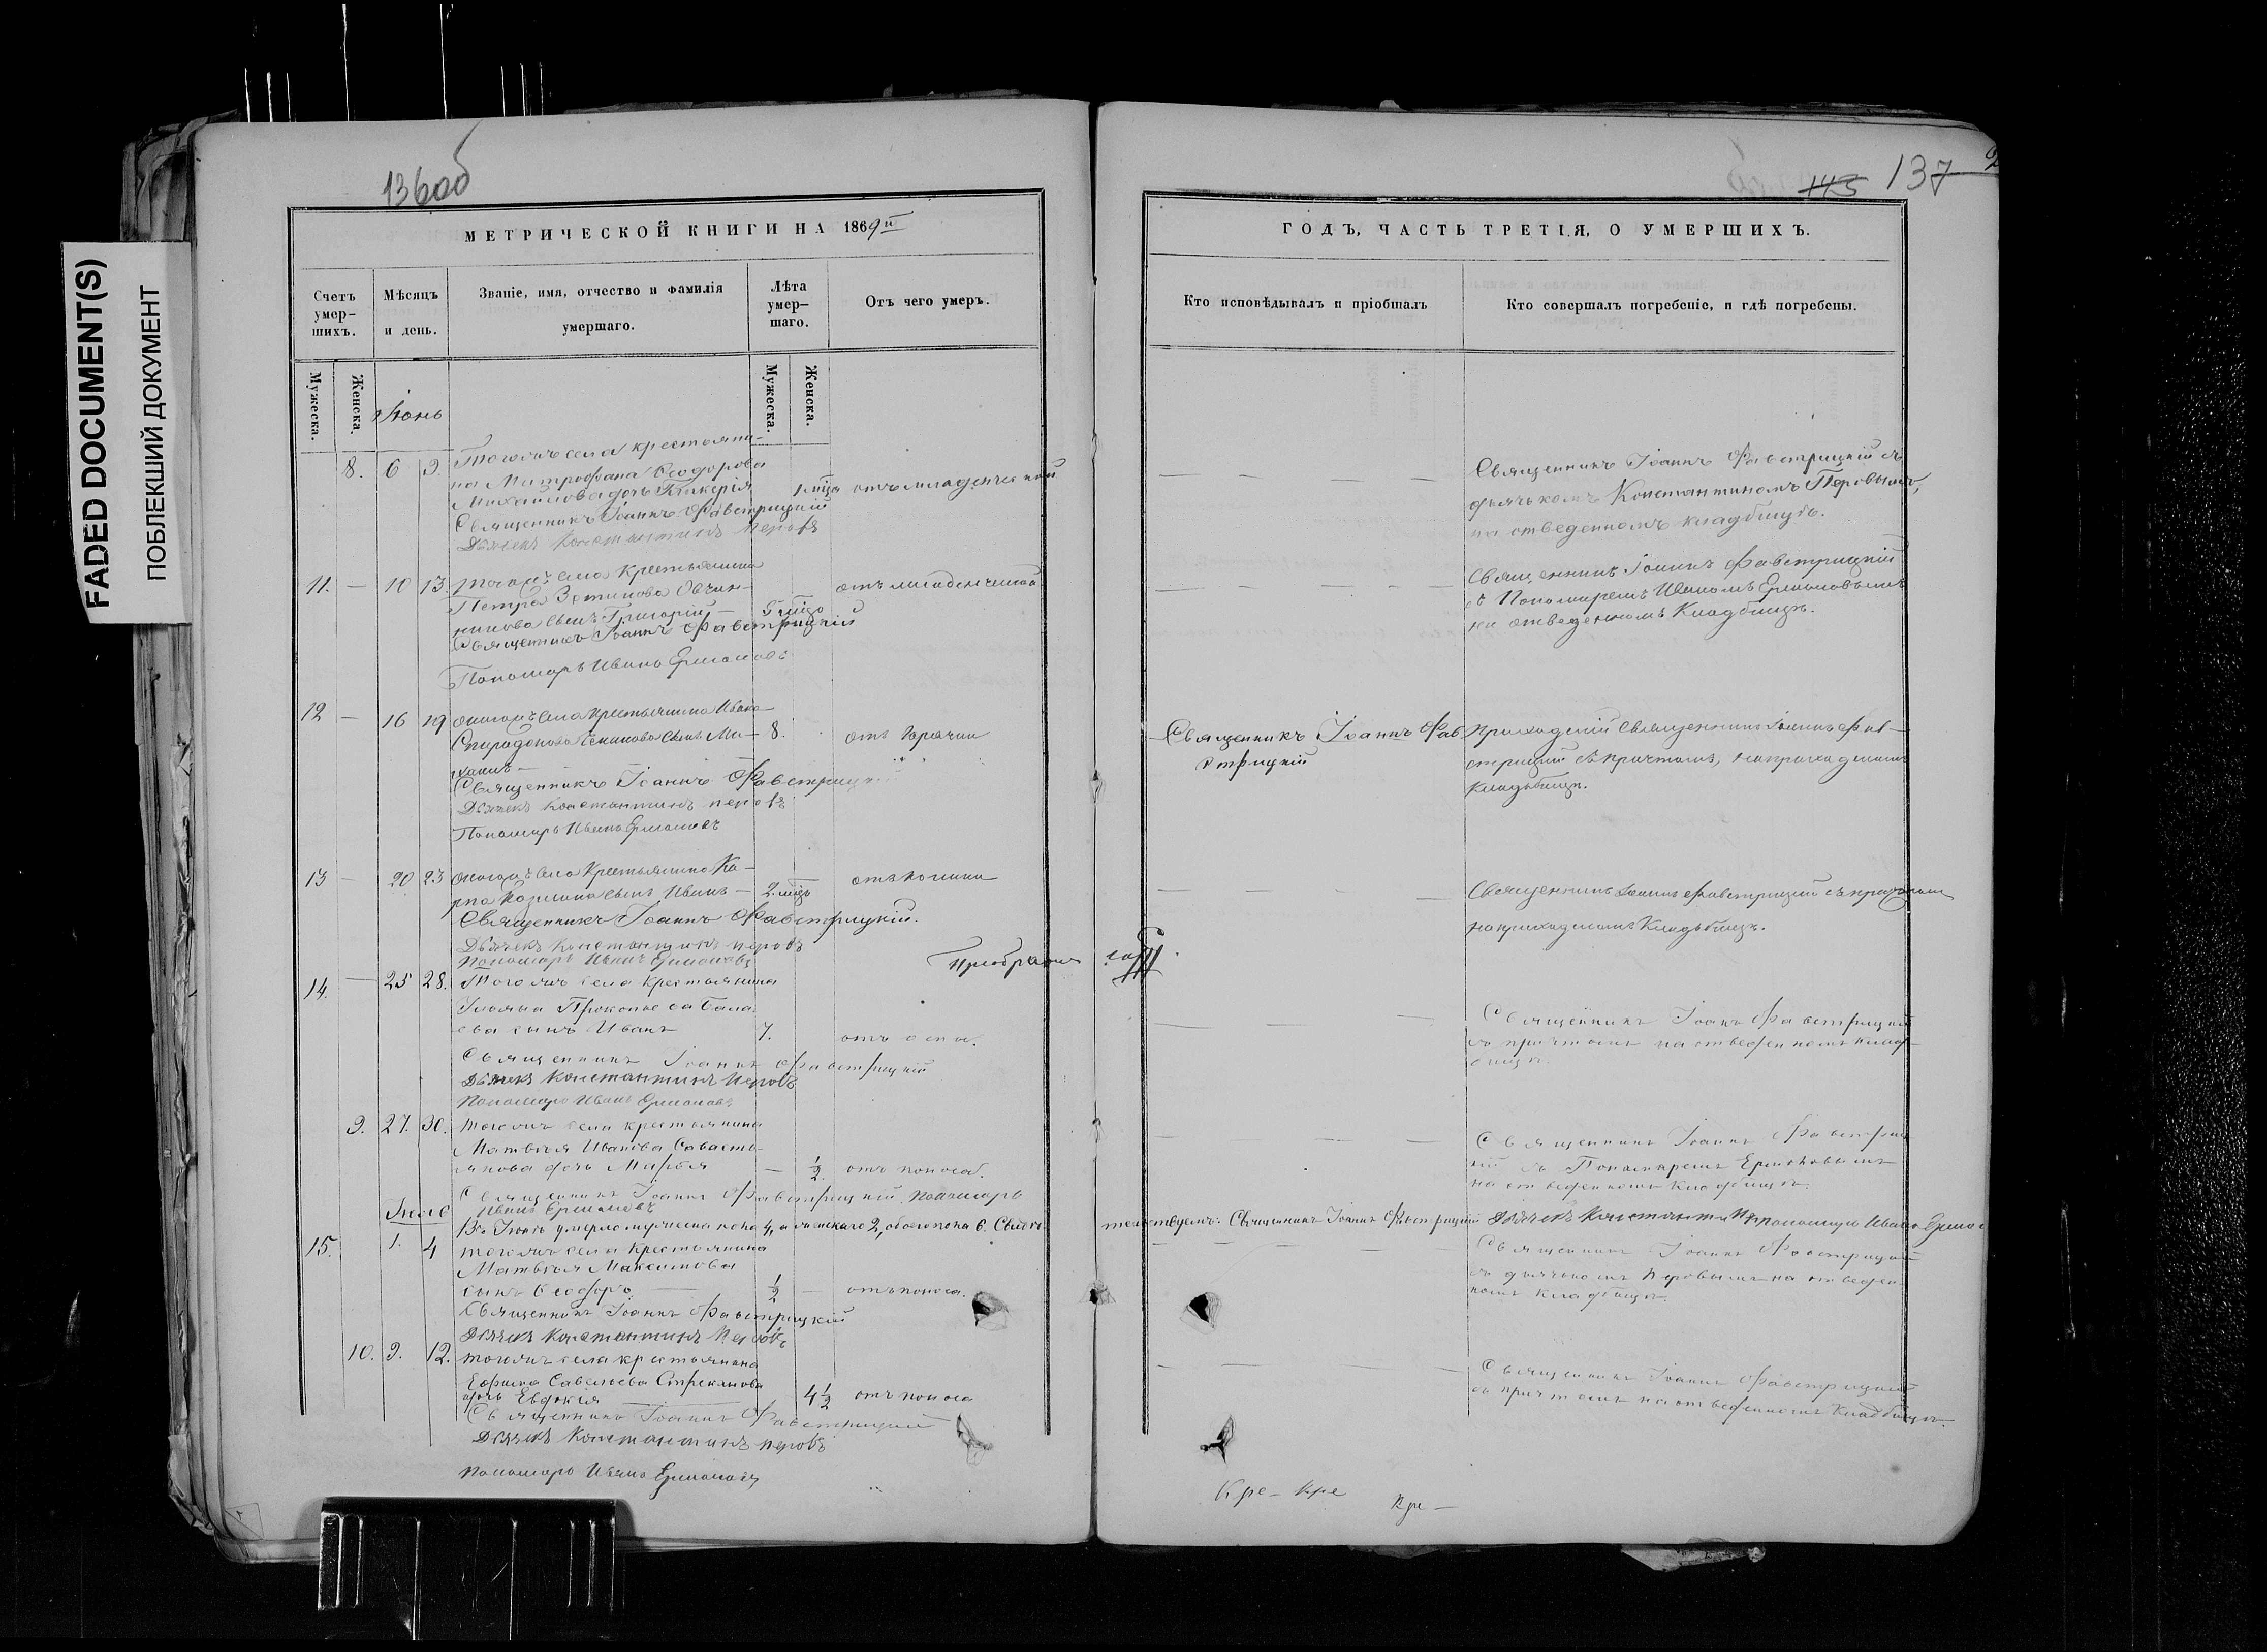 FADED DOCUMENT(S)
ПОБЛЕКШИЙ ДОКУМЕНТ
136об
МЕТРИЧЕСКОЙ КНИГИ НА 1869й
Счетъ умер-шихъ.
Мѣсяцъ и день.
Званіе, имя, отчество и фамилія умершаго.
Лѣта умер-шаго.
Отъ чего умеръ.
Мужеска.
Женска.
Мужеска.
Женска.
Іюнь
8. 6 9. Тогожъ села крестьяни-
на Митрофана Ѳеодорова
Михайлова дочь Гликерія 1 мца отъ младенческой
Священникъ Іоаннъ Фавстрицкій
Дьячекъ Константинъ Перовъ
11. — 10 13. тогожъ села Крестьянина
Петра Зотикова Овчин-
никова сынъ Григорій — 5 мцо отъ младенческой
Священникъ Іоаннъ Фавстрицкій
Пономарь Иванъ Ермаковъ
12 — 16 19 села Крестьянина Ивана
Спиридонова сынъ Ми- 8. отъ Горячки
хаилъ —
Священникъ Іоаннъ Фавстрицкій
Дьячекъ Константинъ Перовъ
Пономарь Иванъ Ермаковъ
13 — 20 23 села Крестьянина Ка-
рпа сынъ Иванъ — 2 мцъ
Священникъ Іоаннъ Фавстрицкій.
Дьячекъ Константинъ Перовъ
Пономарь Иванъ Ермаковъ
14. — 25 28. Тогожъ села крестьянина
Ульяна Прокопьева Бала
ева сынъ Иванъ 7. отъ оспы.
Священникъ Іоаннъ Фавстрицкій
Дьячекъ Константинъ Перовъ
Пономарь Иванъ Ермаковъ
9. 27. 30. тогожъ села крестьянина
Матвѣя Иванова Савасть-
янова дочь Марѳа — 1/2 отъ поноса.
Священникъ Іоаннъ Фавстрицкій. Пономарь
Иванъ Ермаковъ
Іюле
Въ Іюнѣ умерло мужеска пола 4, а женскаго 2, обоего пола 6. Свидѣ
15. 1. 4 тогожъ села крестьянина
Матвѣя Максимова
сынъ Ѳеодоръ. 1/2 — отъ поноса.
Священникъ Іоаннъ Фавстрицкій
Дьячекъ Константинъ Перовъ
10. 9. 12. тогожъ села крестьянина
Ефима Савельева Стреканова
дочь Евдокія 4 1/2 отъ поноса
Священникъ Іоаннъ Фавстрицкій
Дьячекъ Константинъ Перовъ
Пономарь Иванъ Ермаковъ
145 137
ГОДЪ, ЧАСТЬ ТРЕТІЯ, О УМЕРШИХЪ.
Кто исповѣдывалъ и пріобщалъ
Кто совершалъ погребеніе, и гдѣ погребены.
Священникъ Іоаннъ Фавстрицкій съ
дьячькомъ Константиномъ Перовымъ,
на отведенномъ кладбищѣ.
Священникъ Іоаннъ Фавстрицкій
съ Пономаремъ Иваномъ Ермаковымъ
на отведенномъ Кладбищѣ.
Священникъ Іоаннъ Фав
стрицкій
приходскій Священникъ Іоаннъ Фав-
стрицкій съ причтомъ, на приходскомъ
Кладьбищѣ.
Священникъ Іоаннъ Фавстрицкій съ причтомъ
на приходскомъ Кладьбищѣ.
Священникъ Іоаннъ Фавстрицкій
съ причтомъ на отведенномъ клад-
бищѣ
Священникъ Іоаннъ Фавстриц
кій съ Пономаремъ Ермаковымъ
на отведенномъ кладбищѣ.
тельствуемъ: Священникъ Іоаннъ Фавстрицкій Дьячекъ Константинъ пономарь Иванъ Ермак
Священникъ Іоаннъ Фавстрицкій
съ дьячькомъ Перовымъ на отведен-
номъ кладбищѣ.
Священникъ Іоаннъ Фавстрицкій
съ причтомъ на отведенномъ Кладбищѣ.
Кре- Кре Кре —